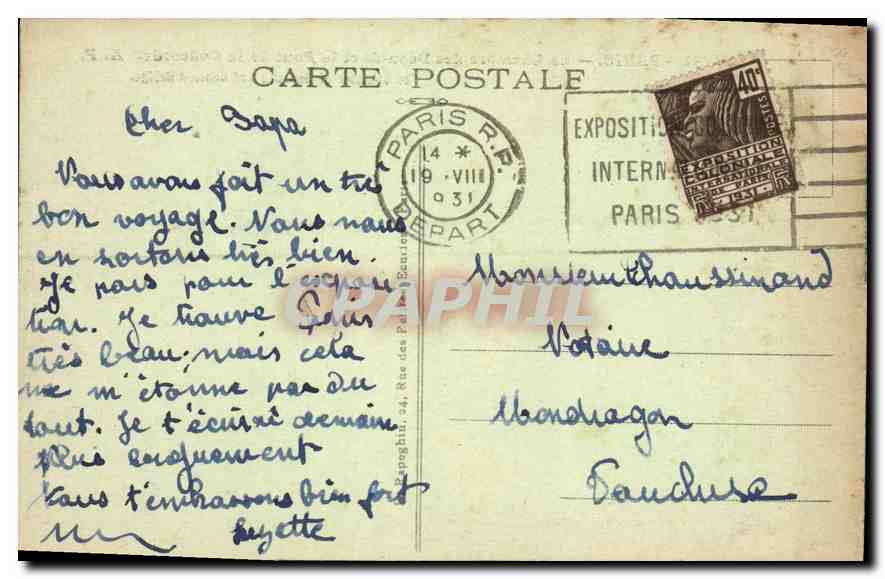 CARTE POSTALE
Cher Papa
Vous avons fait un très
bon voyage. Nous nous
en sortons très bien.
Je pars pour l'exposi
tion. Je trouve Paris
très beau, mais cela
ne m'étonne pas du
tout. Je t'écrirai demain
plus longuement
Nous t'embrassons bien fort
Suzette
PARIS R.P.
14 *
19 VIII
931
DEPART
EXPOSITION COLONIALE
INTERN
PARIS 1931
40c
POSTES
EXPOSITION
COLONIALE
INTERNATIONALE
PARIS
1931
Monsieur Chaussinand
Notaire
Mondragon
Vaucluse
Papeghin, 24, Rue des Petites-Ecuries
CPAPHIL